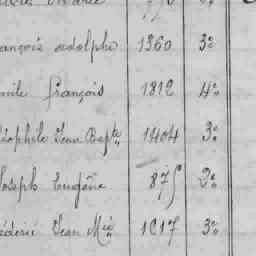 ançois adolphe 1360 3e
mile françois 1812 4e
éophile Jean Bapte 1404 3e
Joseph Eugène 875 2e
édéric Jean Mie 1017 3e